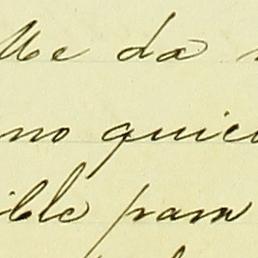 Me da
no quie
ible para